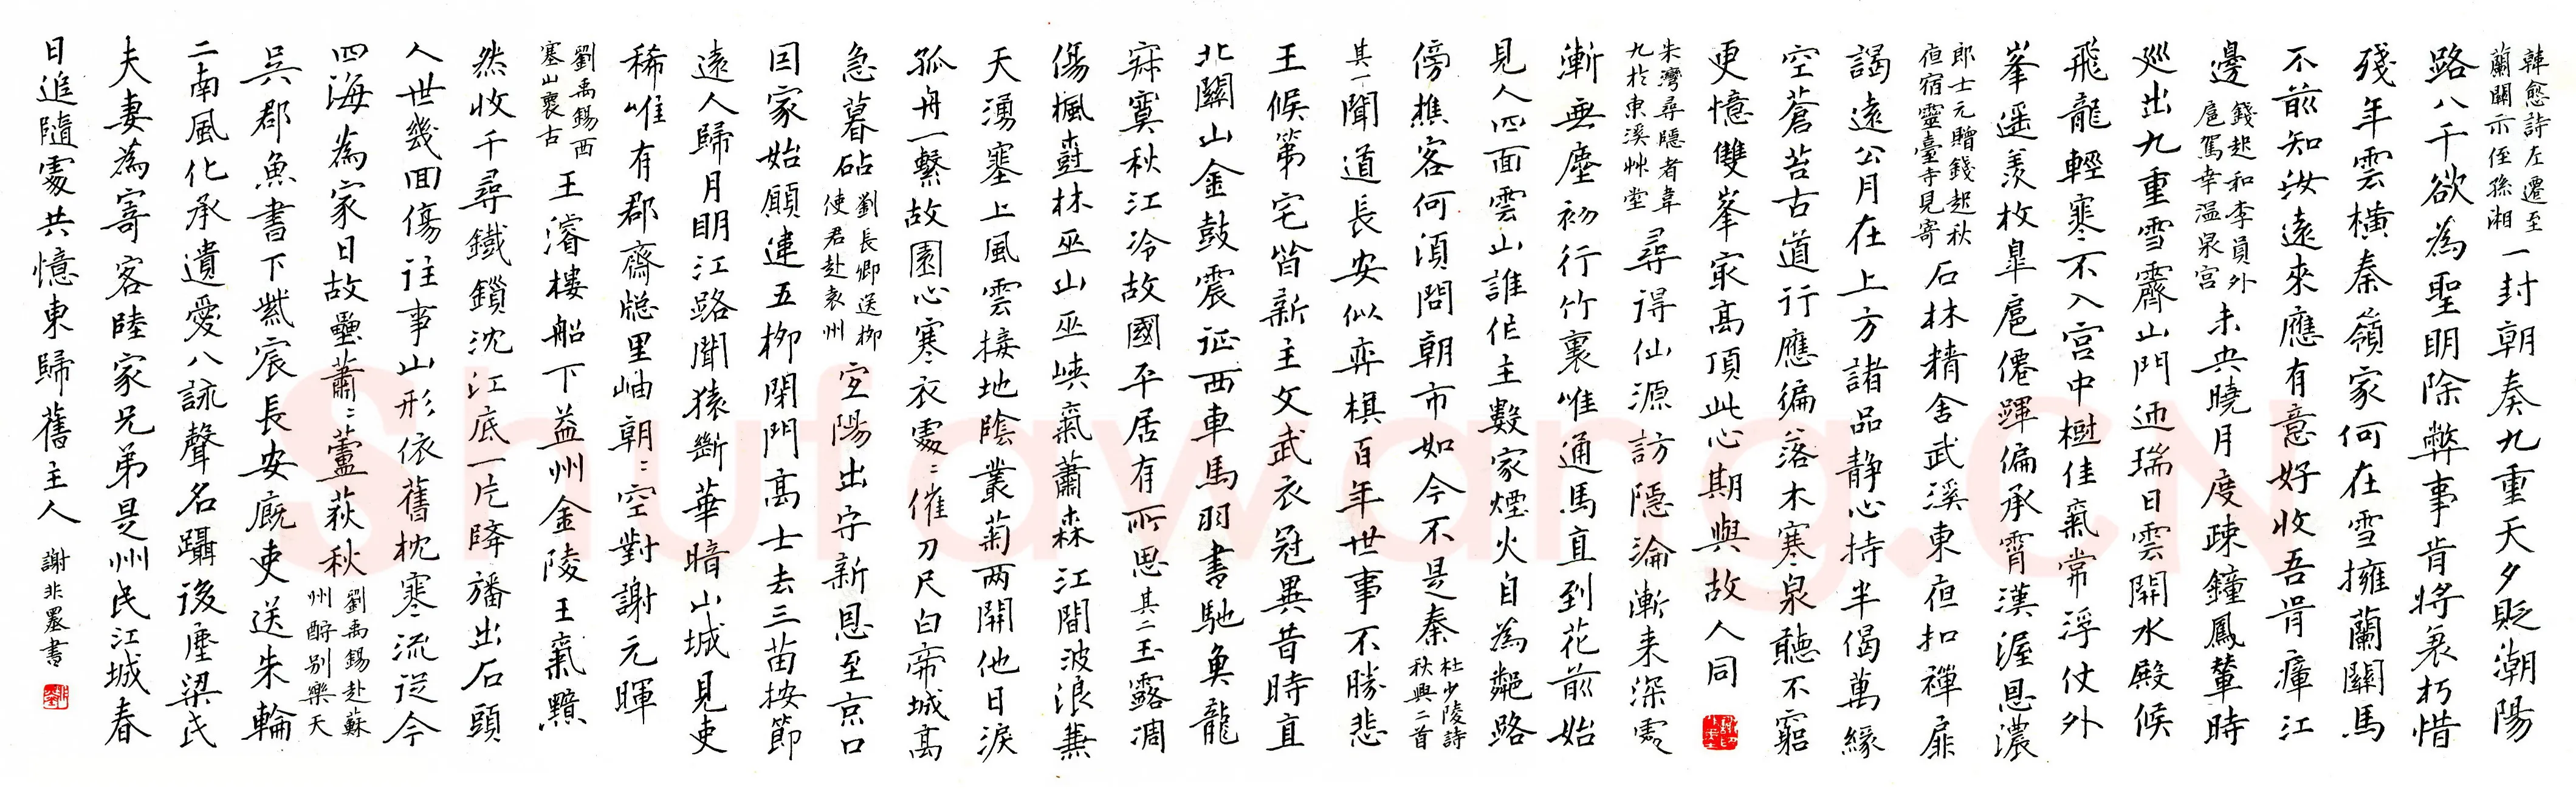 韓愈詩左遷至
蘭關示侄孫湘
一封朝奏九重天夕貶潮陽
路八千欲為聖明除弊事肯將衰朽惜
殘年雲橫秦嶺家何在雪擁蘭關馬
不前知汝遠來應有意好收吾骨瘴江
邊
錢起和李員外
扈駕幸溫泉宮
未央曉月度疎鐘鳳輦時
巡出九重雪霽山門迎瑞日雲開水殿候
飛龍輕寒不入宮中樹佳氣常浮仗外
峯遥羨枚皐扈僊蹕偏承霄漢渥恩濃
郎士元贈錢起秋
夜宿靈臺寺見寄
石林精舍武溪東夜扣禪扉
謁遠公月在上方諸品靜心持半偈萬緣
空蒼苔古道行應徧落木寒泉聽不窮
更憶雙峯最高頂此心期與故人同
朱灣尋隱者韋
九於東溪草堂
尋得仙源訪隱淪漸來深處
漸無塵初行竹裏唯通馬直到花前始
見人四面雲山誰作主數家煙火自為鄰路
傍樵客何須問朝市如今不是秦
杜少陵詩
秋興二首
其一
聞道長安似弈棋百年世事不勝悲
王候第宅皆新主文武衣冠異昔時直
北關山金鼓震征西車馬羽書馳魚龍
寂寞秋江冷故國平居有所思
其二
玉露凋
傷楓樹林巫山巫峽氣蕭森江間波浪兼
天湧塞上風雲接地陰叢菊兩開他日淚
孤舟一繫故園心寒衣處〻催刀尺白帝城高
急暮砧
劉長卿送柳
使君赴袁州
宜陽出守新恩至京口
因家始願連五柳閉門高士去三苗按節
遠人歸月明江路聞猿斷華暗山城見吏
稀唯有郡齋窗里岫朝〻空對謝元暉
劉禹錫西
塞山褱古
王濬樓船下益州金陵王氣黯
然收千尋鐵鎖沈江底一片降旛出石頭
人世幾回傷往事山形依舊枕寒流從今
四海為家日故壘蕭〻蘆荻秋
劉禹錫赴蘇
州酹別樂天
吳郡魚書下紫宸長安廄吏送朱輪
二南風化承遺愛八詠聲名躡後塵梁氏
夫妻為寄客陸家兄弟是州民江城春
日追隨處共憶東歸舊主人
謝非墨書
Shufawang.CN